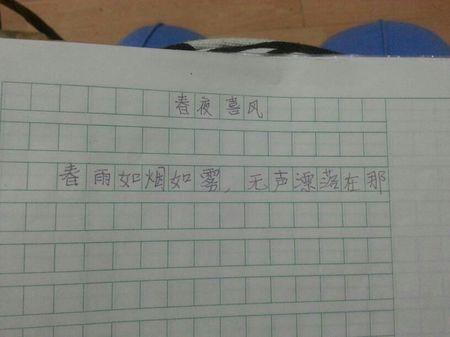 春夜喜风
春雨如烟如雾，无声漂落在那